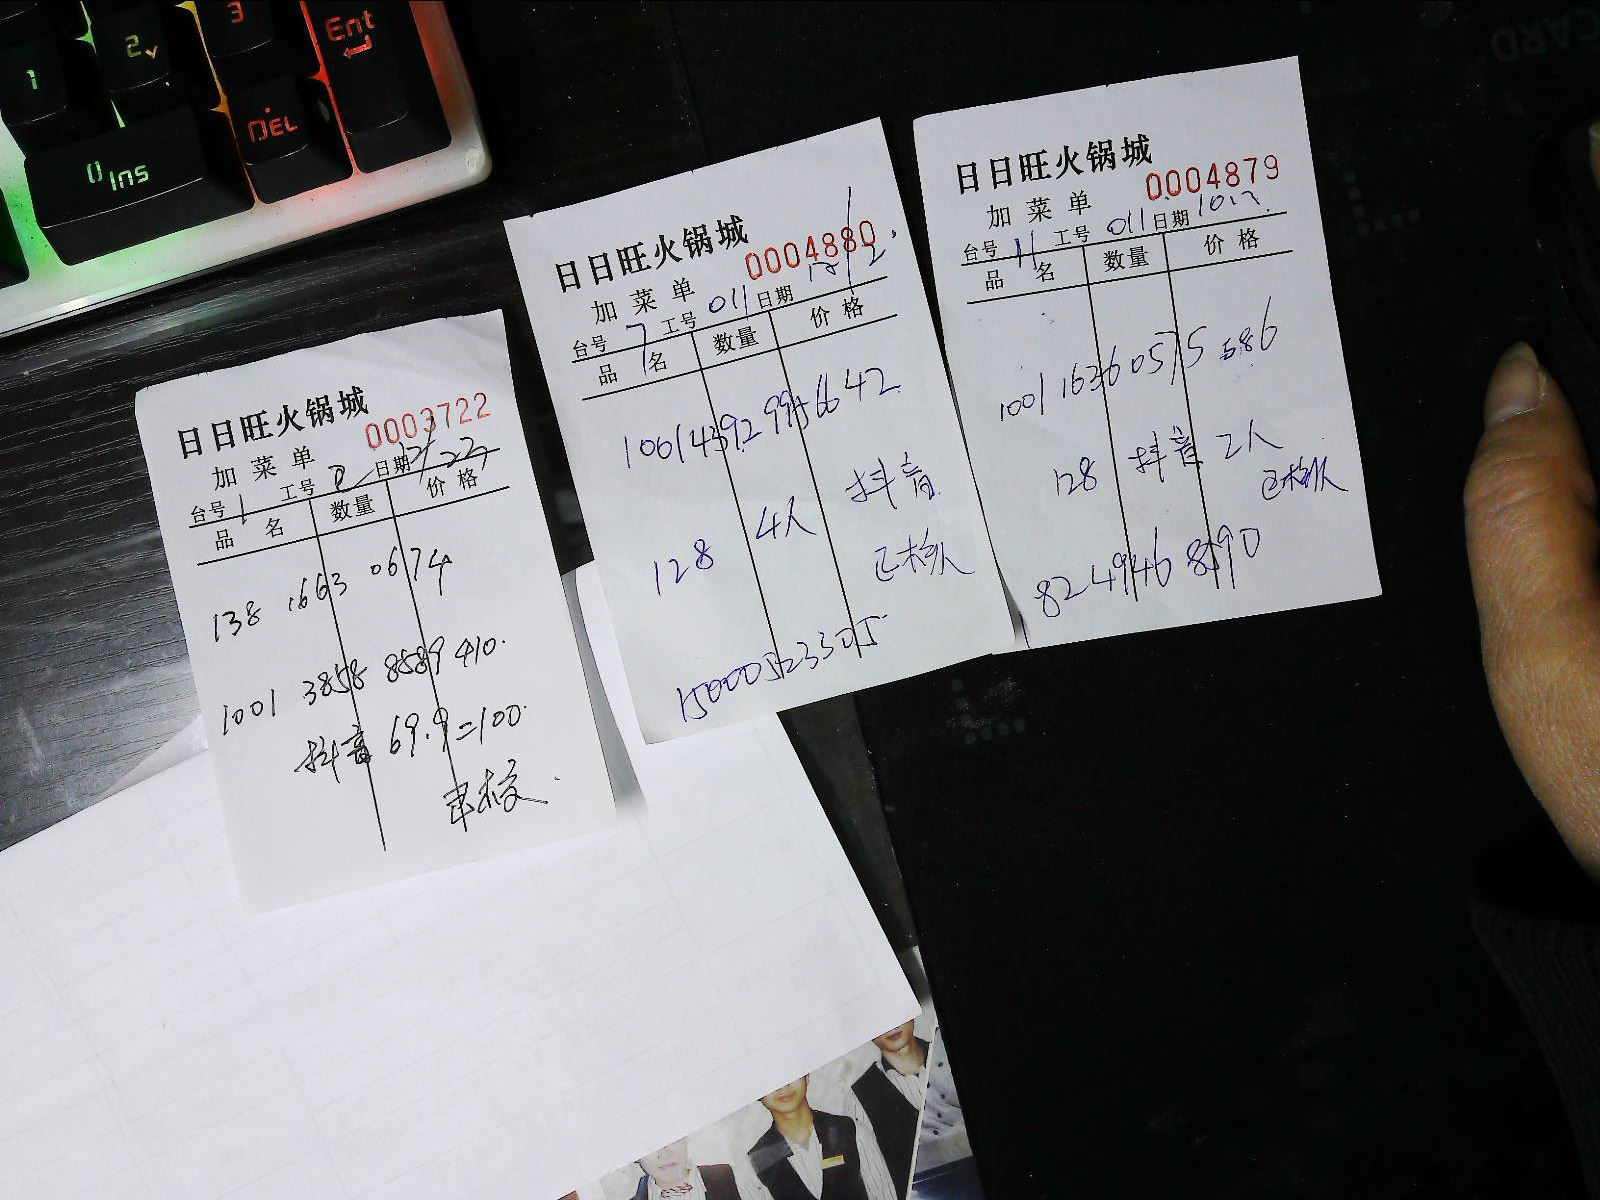 1
2
3
Ent
0 Ins
DEL
日日旺火锅城
0003722
加菜单
台号 1 工号 日期
品名 数量 价格
138 1663 0674
1001 3858 8589 410.
抖音 69.9=100.
日日旺火锅城
0004880
加菜单
台号 7 工号 011 日期
品名 数量 价格
128 4人 抖音
15000523305
日日旺火锅城
0004879
加菜单
台号 11 工号 011 日期
品名 数量 价格
1001 1636 0575 586
128 抖音 2人
1824946 8590